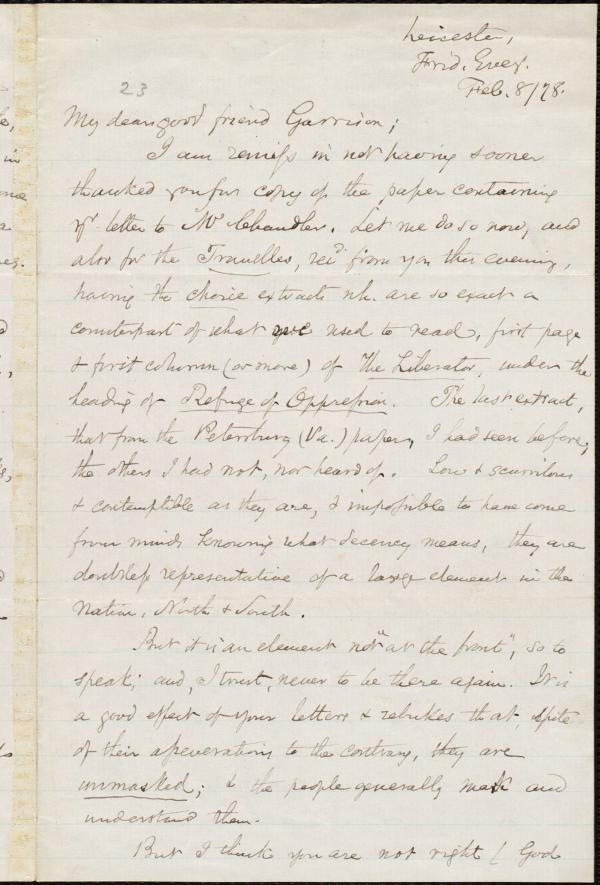 Leicester,
Frid. Eveg.
Feb. 8/78.
23
My dear good friend Garrison;
I am remiss in not having sooner
thanked you for copy of the paper containing
yr. letter to Mr Chandler. Let me do so now, and
also for the Traveller, recd. from you this evening,
having the choice extracts wh. are so exact a
counterpart of what we used to read, first page
& first column (or more) of The Liberator, under the
heading of Refuge of Oppression. The last extract,
that from the Petersburg (Va.) paper, I had seen before;
the others I had not, nor heard of. Low & scurrilous
& contemptible as they are, & impossible to have come
from minds knowing what decency means, they are
doubtless representative of a large element in the
Nation, North & South.
But it is an element not "at the front", so to
speak; and, I trust, never to be there again. It is
a good effect of your letters & rebukes that, spite
of their asseverations to the contrary, they are
unmasked; & the people generally mark and
understand them.
But I think you are not right (God